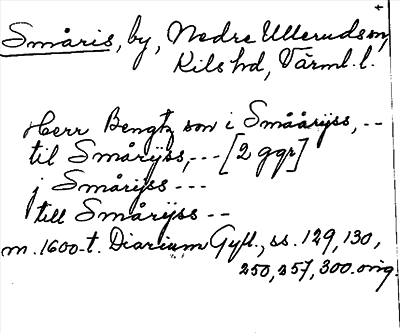 Småris, by, Nedre Ullerud sn,
Kils hd, Värml. l.
Herr Bengtz son i Småårÿss, --
til Smårÿss, --- [2 ggr]
j Smårÿss ---
till Smårÿss --
m. 1600-t. Diarium Gyll., ss. 129, 130,
250, 257, 300. orig.